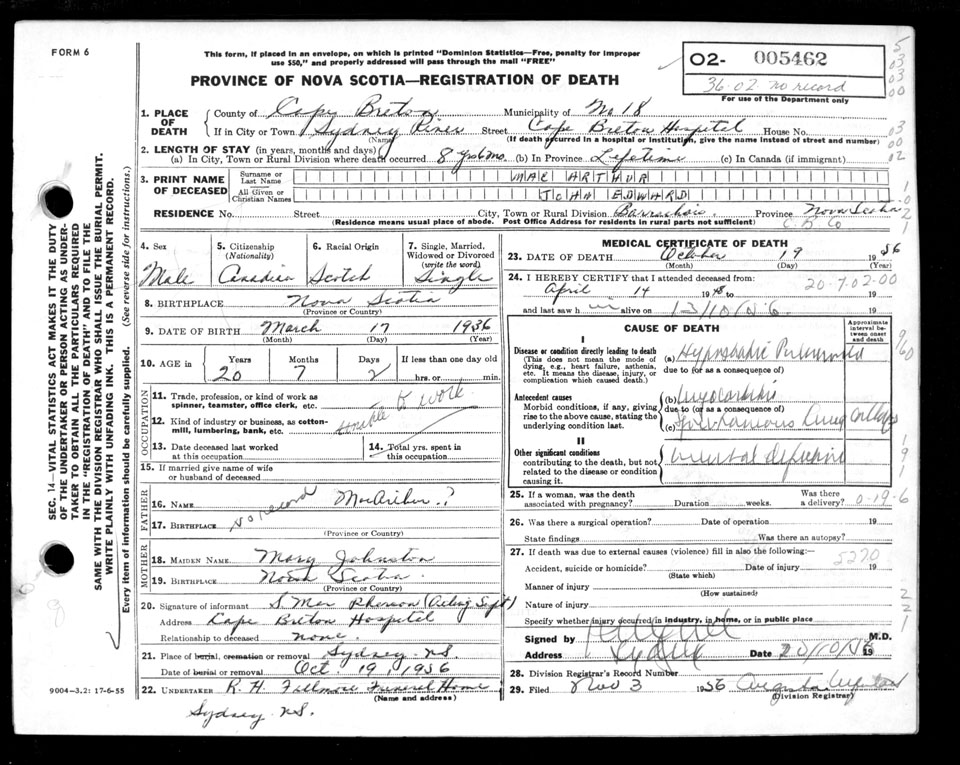 FORM 6
This form, if placed in an envelope, on which is printed "Dominion Statistics—Free, penalty for improper
use $50," and properly addressed will pass through the mail "FREE"
PROVINCE OF NOVA SCOTIA—REGISTRATION OF DEATH
O2- 005462
36.02 no record
For use of the Department only
SEC. 14—VITAL STATISTICS ACT MAKES IT THE DUTY
OF THE UNDERTAKER OR PERSON ACTING AS UNDER-
TAKER TO OBTAIN ALL THE PARTICULARS REQUIRED
IN THE "REGISTRATION OF DEATH" AND TO FILE THE
SAME WITH THE DIVISION REGISTRAR WHO SHALL ISSUE THE BURIAL PERMIT.
WRITE PLAINLY WITH UNFADING INK. THIS IS A PERMANENT RECORD.
Every item of information should be carefully supplied. (See reverse side for instructions.)
1. PLACE OF DEATH
County of Cape Breton Municipality of No 18
If in City or Town Sydney River Street Cape Breton Hospital House No.
(Name) (If death occurred in a hospital or institution, give the name instead of street and number)
2. LENGTH OF STAY (in years, months and days)
(a) In City, Town or Rural Division where death occurred 8 yrs 6 mo. (b) In Province Lifetime (c) In Canada (if immigrant)
3. PRINT NAME OF DECEASED
Surname or Last Name MAC ARTHUR
All Given or Christian Names JOHN EDWARD
RESIDENCE No. Street City, Town or Rural Division Barrachois Province Nova Scotia
(Residence means usual place of abode. Post Office Address for residents in rural parts not sufficient) C. B. Co
4. Sex Male
5. Citizenship (Nationality) Canadian
6. Racial Origin Scotch
7. Single, Married, Widowed or Divorced (write the word) Single
8. BIRTHPLACE Nova Scotia
(Province or Country)
9. DATE OF BIRTH March 17 1936
(Month) (Day) (Year)
10. AGE in Years 20 Months 7 Days 2 If less than one day old hrs. or min.
OCCUPATION
11. Trade, profession, or kind of work as
spinner, teamster, office clerk, etc.
12. Kind of industry or business, as cotton-
mill, lumbering, bank, etc.
unable to work
13. Date deceased last worked
at this occupation
14. Total yrs. spent in
this occupation
15. If married give name of wife
or husband of deceased
FATHER
16. NAME MacArthur ?
17. BIRTHPLACE No record
(Province or Country)
MOTHER
18. MAIDEN NAME Mary Johnston
19. BIRTHPLACE Nova Scotia
(Province or Country)
20. Signature of informant S MacPherson (Acting Supt)
Address Cape Breton Hospital
Relationship to deceased none.
21. Place of burial, cremation or removal Sydney N.S.
Date of burial or removal Oct. 19, 1956
22. UNDERTAKER R. H. Fillmore Funeral Home
(Name and address)
Sydney N.S.
9004—3.2: 17-6-55
MEDICAL CERTIFICATE OF DEATH
23. DATE OF DEATH October 19 1956
(Month) (Day) (Year)
24. I HEREBY CERTIFY that I attended deceased from:
April 14 1948 to 19
20-7-02-00
and last saw h im alive on 13/10/56 19
CAUSE OF DEATH
Approximate interval between onset and death
I
Disease or condition directly leading to death
(This does not mean the mode of
dying, e.g., heart failure, asthenia,
etc. It means the disease, injury, or
complication which caused death.)
(a) Hypostatic Pneumonia
due to (or as a consequence of)
Antecedent causes
Morbid conditions, if any, giving
rise to the above cause, stating the
underlying condition last.
(b) Myocarditis
due to (or as a consequence of)
(c) Spontaneous Lung Collapse
II
Other significant conditions
contributing to the death, but not
related to the disease or condition
causing it.
mental deficiency
25. If a woman, was the death
associated with pregnancy? Duration weeks. Was there a delivery?
0-19-6
26. Was there a surgical operation? Date of operation 19
State findings Was there an autopsy?
27. If death was due to external causes (violence) fill in also the following:—
Accident, suicide or homicide? Date of injury 19
(State which)
5220
Manner of injury
(How sustained)
Nature of injury
Specify whether injury occurred in industry, in home, or in public place
Signed by M.D.
Address Sydney Date 20/10/56 19
28. Division Registrar's Record Number
29. Filed Nov 3 1956
(Division Registrar)